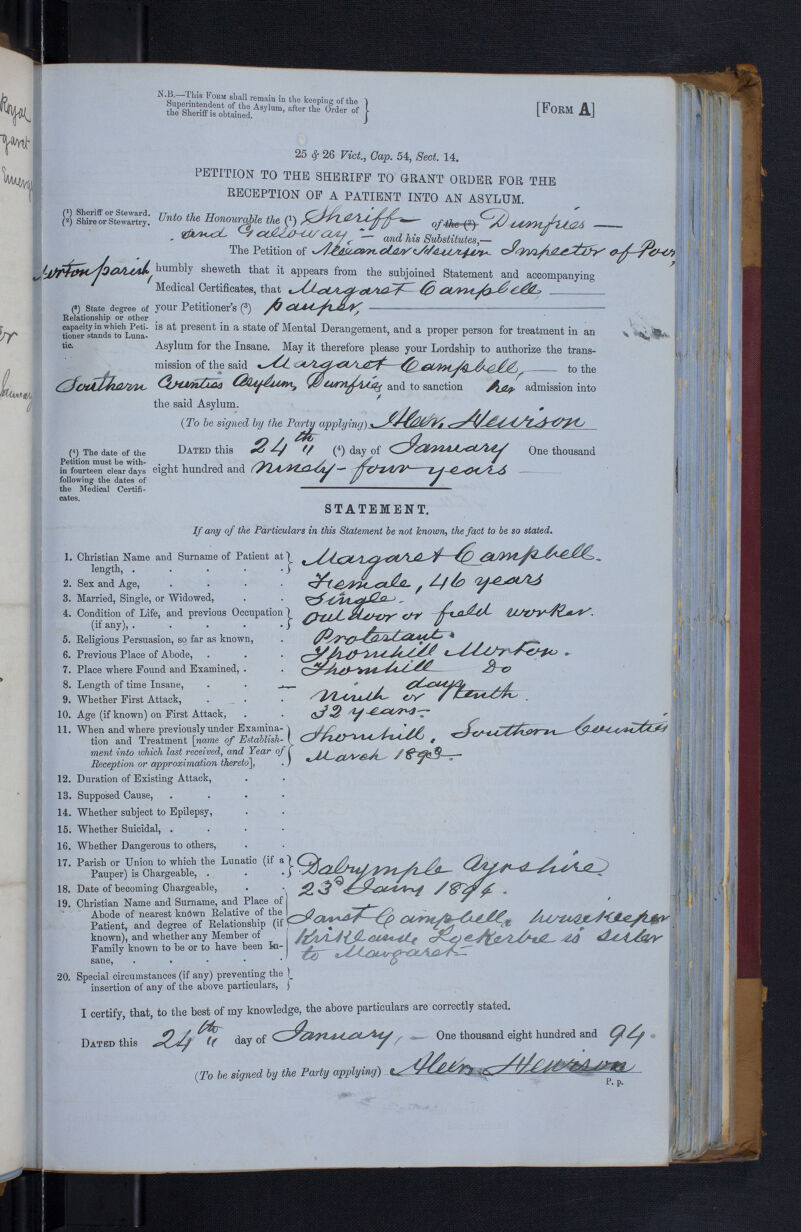 N.B.—This Form shall remain in the keeping of the
Superintendent of the Asylum, after the Order of
the Sheriff is obtained.
[Form A]
25 & 26 Vict., Cap. 54, Sect. 14.
PETITION TO THE SHERIFF TO GRANT ORDER FOR THE
RECEPTION OF A PATIENT INTO AN ASYLUM.
(1) Sheriff or Steward.
(2) Shire or Stewartry.
Unto the Honourable the (1) Sheriff — of the (2) Dumfries —
and Galloway, — and his Substitutes,—
The Petition of Alexander Hewison Inspector of Poor,
Morton parish, humbly sheweth that it appears from the subjoined Statement and accompanying
Medical Certificates, that Margaret Campbell, —
(3) State degree of
Relationship or other
capacity in which Peti-
tioner stands to Luna-
tic.
your Petitioner's (3) pauper, —
is at present in a state of Mental Derangement, and a proper person for treatment in an
Asylum for the Insane. May it therefore please your Lordship to authorize the trans-
mission of the said Margaret Campbell, — to the
Southern Counties Asylum, Dumfries, and to sanction her admission into
the said Asylum.
(To be signed by the Party applying) Alexr. Hewison
(4) The date of the
Petition must be with-
in fourteen clear days
following the dates of
the Medical Certifi-
cates.
Dated this 24th (4) day of January One thousand
eight hundred and ninety-four years —
STATEMENT.
If any of the Particulars in this Statement be not known, the fact to be so stated.
1. Christian Name and Surname of Patient at
length, . . . . . Margaret Campbell.
2. Sex and Age, . . . . Female, 46 years
3. Married, Single, or Widowed, . . Single.
4. Condition of Life, and previous Occupation
(if any), . . . . . Out door or field worker.
5. Religious Persuasion, so far as known, . Protestant.
6. Previous Place of Abode, . . . Thornhill Morton.
7. Place where Found and Examined, . . Thornhill Do
8. Length of time Insane, . . . — days
9. Whether First Attack, . . . Ninth or Tenth.
10. Age (if known) on First Attack, . . 32 years.
11. When and where previously under Examina-
tion and Treatment [name of Establish-
ment into which last received, and Year of
Reception or approximation thereto], .
Thornhill. Southern Counties
March 1893.
12. Duration of Existing Attack, . .
13. Supposed Cause, . . . .
14. Whether subject to Epilepsy, . .
15. Whether Suicidal, . . . .
16. Whether Dangerous to others, . .
17. Parish or Union to which the Lunatic (if a
Pauper) is Chargeable, . . . Dalrymple Ayrshire.
18. Date of becoming Chargeable, . . 23d Jany 1894.
19. Christian Name and Surname, and Place of
Abode of nearest known Relative of the
Patient, and degree of Relationship (if
known), and whether any Member of
Family known to be or to have been In-
sane, . . . . . .
Janet Campbell, housekeeper
Kirklands Lockerbie is sister
to Margaret
20. Special circumstances (if any) preventing the
insertion of any of the above particulars,
I certify, that, to the best of my knowledge, the above particulars are correctly stated.
Dated this 24th day of January, — One thousand eight hundred and 94.
(To be signed by the Party applying) Alexr. Hewison
P. p.